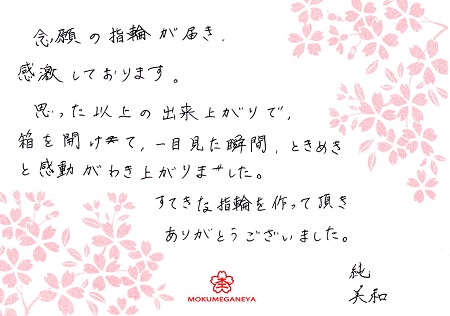 念願の指輪が届き、
感激しております。
思った以上の出来上がりで、
箱を開けて、一目見た瞬間、ときめき
と感動がわき上がりました。
すてきな指輪を作って頂き
ありがとうございました。
純
美和
MOKUMEGANEYA